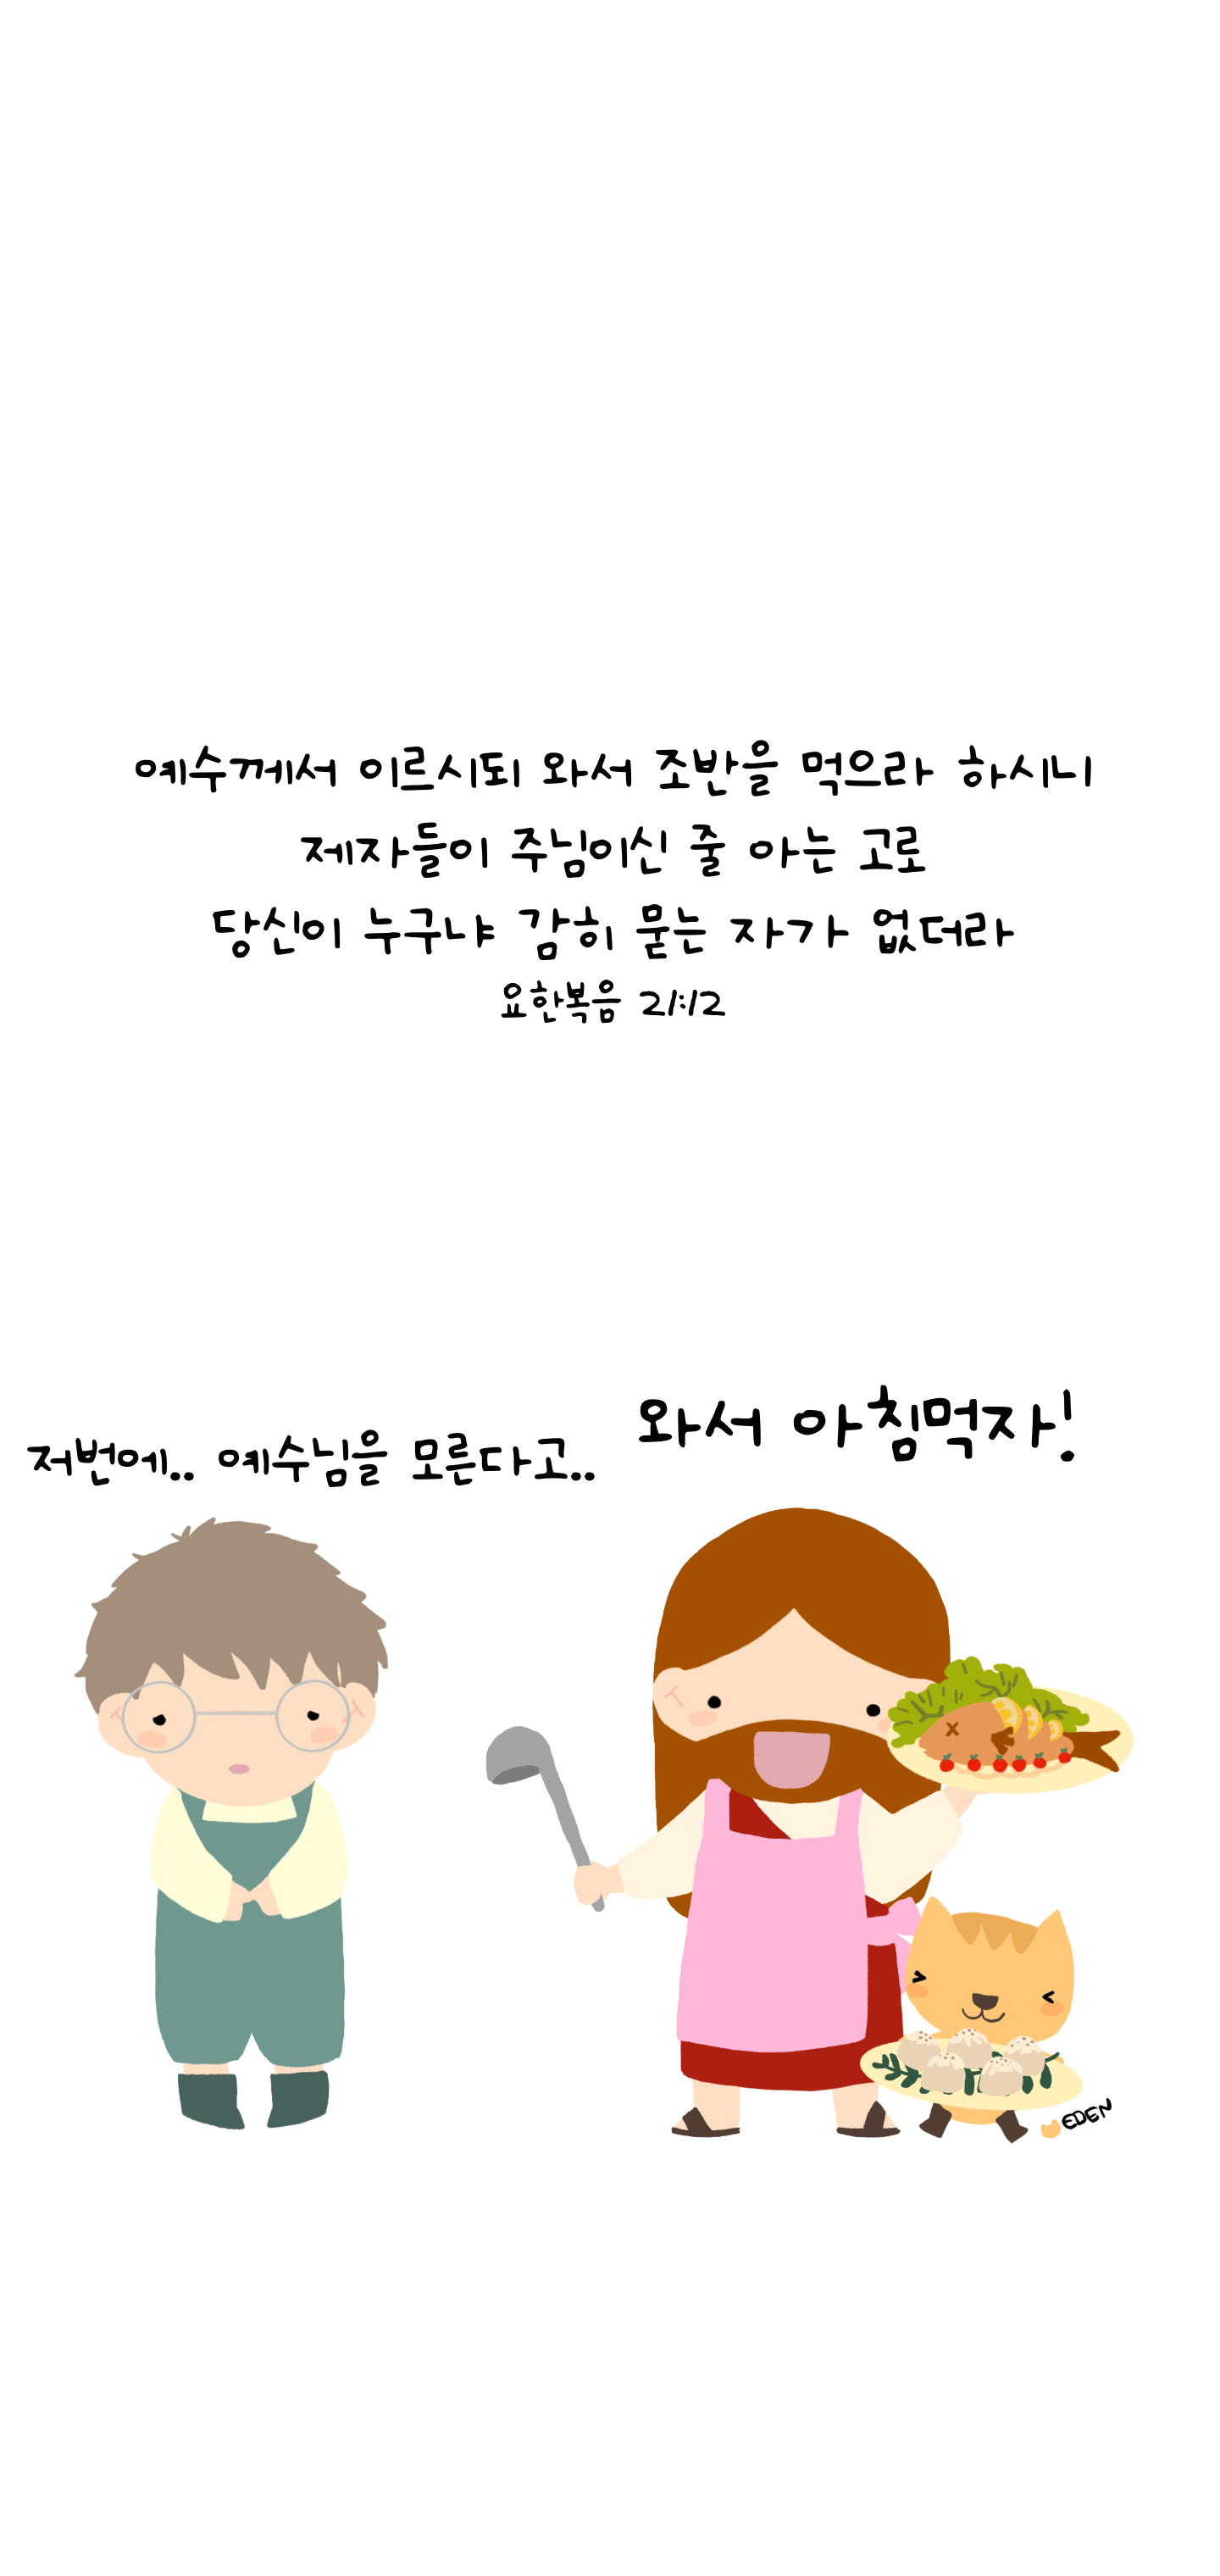 예수께서 이르시되 와서 조반을 먹으라 하시니
제자들이 주님이신 줄 아는 고로
당신이 누구냐 감히 묻는 자가 없더라
요한복음 21:12
저번에.. 예수님을 모른다고..
와서 아침먹자!
EDEN